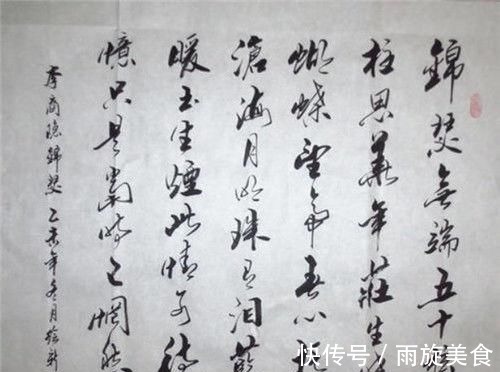 錦瑟無端五十
柱思華年莊生
蝴蝶望帝春心
滄海月明珠有泪藍
暖玉生煙此情可待
憶只是當時已惘然
李商隱錦瑟 乙年冬月
快传号/雨旋美食